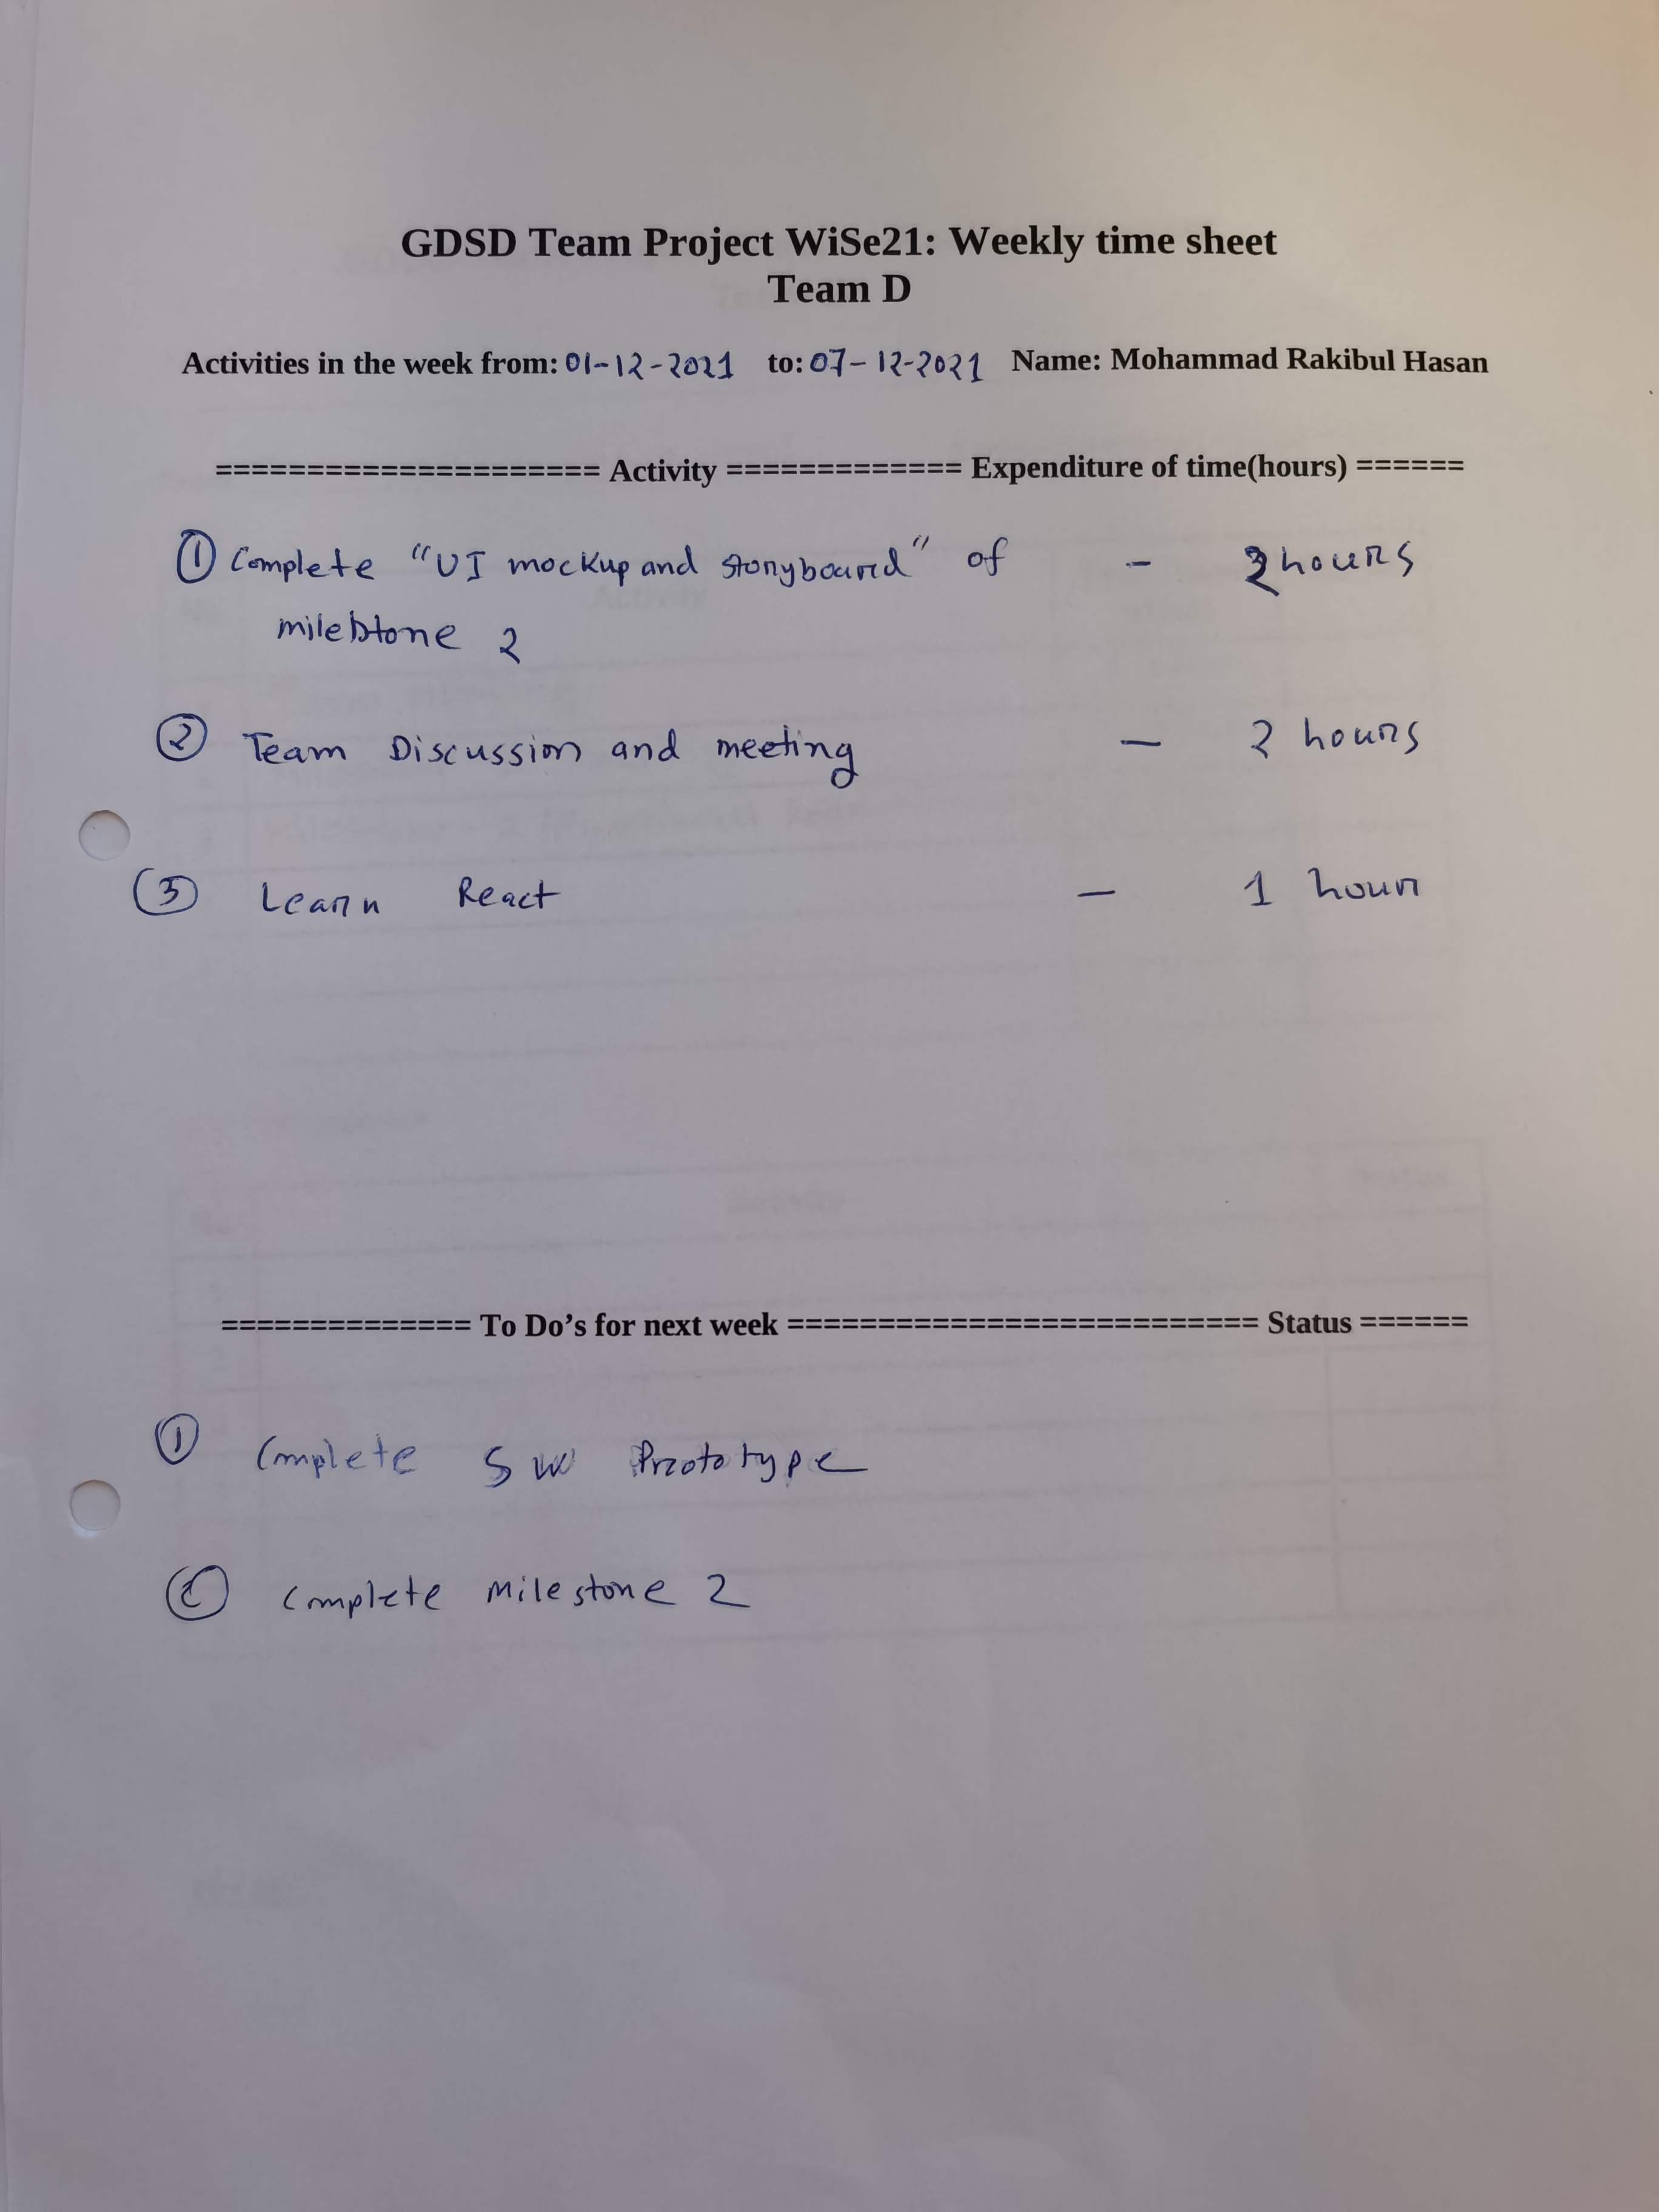 GDSD Team Project WiSe21: Weekly time sheet
Team D
Activities in the week from: 01-12-2021 to: 07-12-2021 Name: Mohammad Rakibul Hasan
===================== Activity ============= Expenditure of time(hours) ======
① Complete "UI mockup and storyboard" of - hours
milestone 2
② Team Discussion and meeting — 2 hours
③ Learn React — 1 hour
============== To Do's for next week ========================== Status ======
① Complete SW Prototype
② Complete Milestone 2